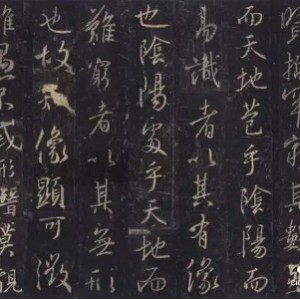 賢哲罕窮其數
而天地苞乎陰陽而
易識者以其有像
也陰陽處乎天地而
難窮者以其無形
也故知像顯可徵
雖愚不惑形潛莫覩